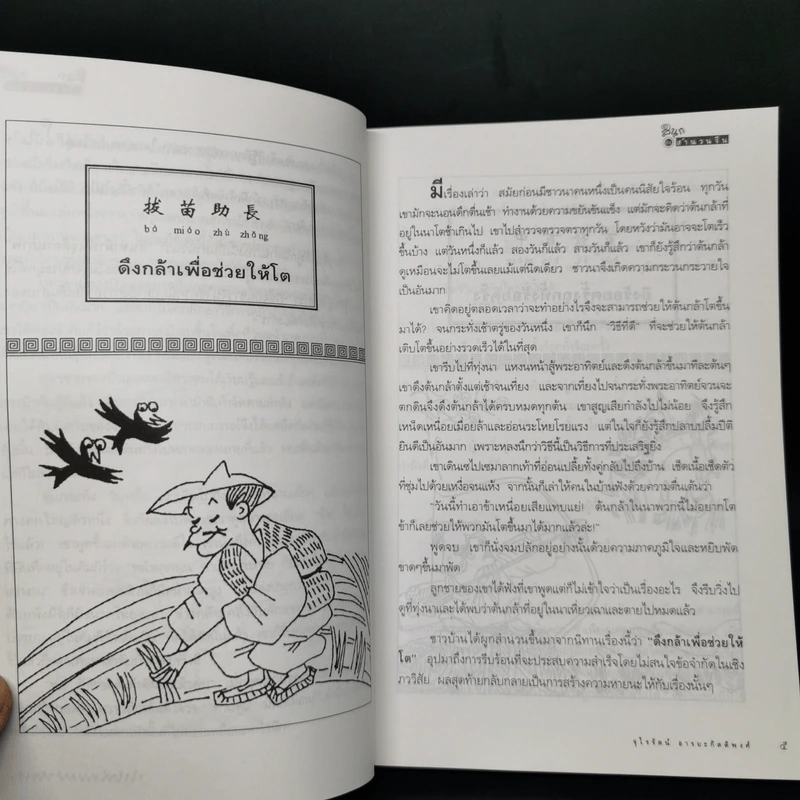 拔苗助長
bá miáo zhù zhǎng
ดึงกล้าเพื่อช่วยให้โต
สนุก
สำนวนจีน
มีเรื่องเล่าว่า สมัยก่อนมีชาวนาคนหนึ่งเป็นคนนิสัยใจร้อน ทุกวัน
เขามักจะนอนดึกตื่นเช้า ทำงานด้วยความขยันขันแข็ง แต่มักจะคิดว่าต้นกล้าที่
อยู่ในนาโตช้าเกินไป เขาไปสำรวจตรวจตราทุกวัน โดยหวังว่ามันอาจจะโตเร็ว
ขึ้นบ้าง แต่วันหนึ่งก็แล้ว สองวันก็แล้ว สามวันก็แล้ว เขาก็ยังรู้สึกว่าต้นกล้า
ดูเหมือนจะไม่โตขึ้นเลยแม้แต่นิดเดียว ชาวนาจึงเกิดความกระวนกระวายใจ
เป็นอันมาก
เขาคิดอยู่ตลอดเวลาว่าจะทำอย่างไรจึงจะสามารถช่วยให้ต้นกล้าโตขึ้น
มาได้? จนกระทั่งเช้าตรู่ของวันหนึ่ง เขาก็นึก "วิธีที่ดี" ที่จะช่วยให้ต้นกล้า
เติบโตขึ้นอย่างรวดเร็วได้ในที่สุด
เขารีบไปที่ทุ่งนา แหงนหน้าสู้พระอาทิตย์และดึงต้นกล้าขึ้นมาทีละต้นๆ
เขาดึงต้นกล้าตั้งแต่เช้าจนเที่ยง และจากเที่ยงไปจนกระทั่งพระอาทิตย์จวนจะ
ตกดินจึงดึงต้นกล้าได้ครบหมดทุกต้น เขาสูญเสียกำลังไปไม่น้อย จึงรู้สึก
เหน็ดเหนื่อยเมื่อยล้าและอ่อนระโหยโรยแรง แต่ในใจก็ยังรู้สึกปลาบปลื้มปิติ
ยินดีเป็นอันมาก เพราะหลงนึกว่าวิธีนี้เป็นวิธีการที่ประเสริฐยิ่ง
เขาเดินเซไปเซมาลากเท้าที่อ่อนเปลี้ยทั้งคู่กลับไปถึงบ้าน เช็ดเนื้อเช็ดตัว
ที่ชุ่มไปด้วยเหงื่อจนแห้ง จากนั้นก็เล่าให้คนในบ้านฟังด้วยความตื่นเต้นว่า
"วันนี้ทำเอาข้าเหนื่อยเสียแทบแย่! ต้นกล้าในนาพวกนี้ไม่อยากโต
ข้าก็เลยช่วยให้พวกมันโตขึ้นมาได้มากแล้วล่ะ!"
พูดจบ เขาก็นั่งจมปลักอยู่อย่างนั้นด้วยความภาคภูมิใจและหยิบพัด
ขาดๆขึ้นมาพัด
ลูกชายของเขาได้ฟังที่เขาพูดแต่ก็ไม่เข้าใจว่าเป็นเรื่องอะไร จึงรีบวิ่งไป
ดูที่ทุ่งนาและได้พบว่าต้นกล้าที่อยู่ในนาเหี่ยวเฉาและตายไปหมดแล้ว
ชาวบ้านได้ผูกสำนวนขึ้นมาจากนิทานเรื่องนี้ว่า "ดึงกล้าเพื่อช่วยให้
โต" อุปมาถึงการรีบร้อนที่จะประสบความสำเร็จโดยไม่สนใจข้อจำกัดในเชิง
ภววิสัย ผลสุดท้ายกลับกลายเป็นการสร้างความหายนะให้กับเรื่องนั้นๆ
จุไรรัตน์ อารยะกิตติพงศ์ ๕